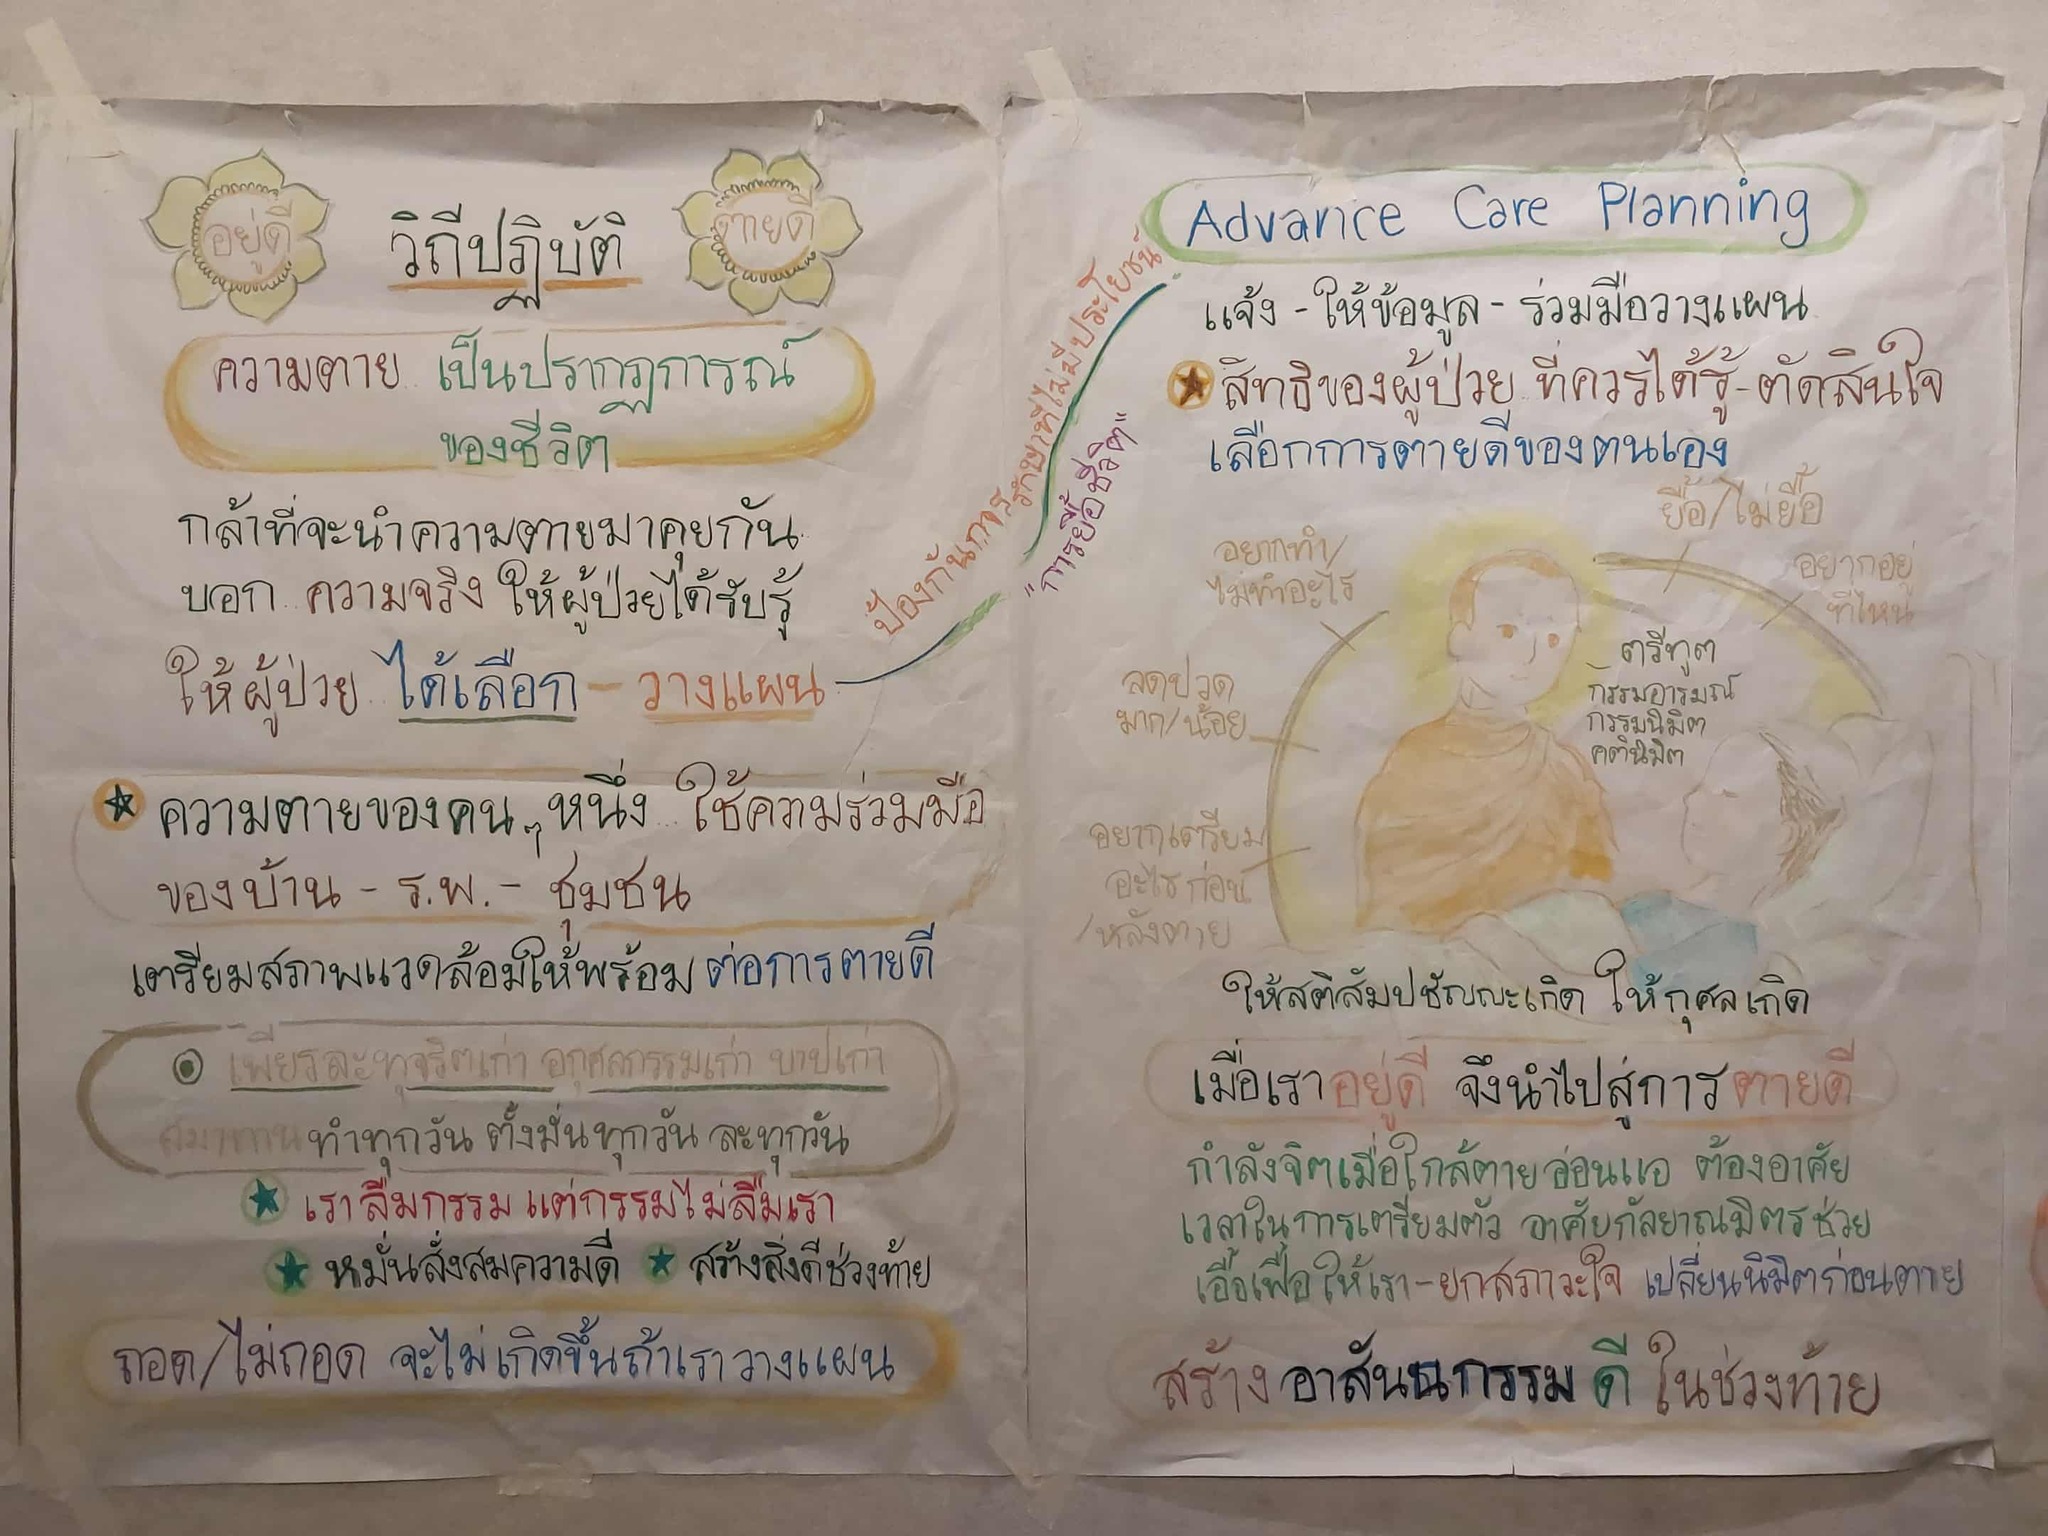 อยู่ดี
วิถีปฏิบัติ
ตายดี
ความตาย เป็นปรากฏการณ์
ของชีวิต
กล้าที่จะนำความตายมาคุยกัน
บอก ความจริง ให้ผู้ป่วยได้รับรู้
ให้ผู้ป่วย ได้เลือก - วางแผน
ป้องกันการรักษาที่ไม่มีประโยชน์
"การยื้อชีวิต"
ความตายของคนๆหนึ่ง ใช้ความร่วมมือ
ของบ้าน - ร.พ. - ชุมชน
เตรียมสภาพแวดล้อมให้พร้อม ต่อการตายดี
เพียรละทุจริตเก่า อกุศลกรรมเก่า บาปเก่า
สมาทานทำทุกวัน ตั้งมั่นทุกวัน ละทุกวัน
เราลืมกรรม แต่กรรมไม่ลืมเรา
หมั่นสั่งสมความดี สร้างสิ่งดีช่วงท้าย
ถอด/ไม่ถอด จะไม่เกิดขึ้นถ้าเราวางแผน
Advance Care Planning
แจ้ง - ให้ข้อมูล - ร่วมมือวางแผน
สิทธิของผู้ป่วย ที่ควรได้รู้ - ตัดสินใจ
เลือกการตายดีของตนเอง
ยื้อ/ไม่ยื้อ
อยากทำ/
ไม่ทำอะไร
อยากอยู่
ที่ไหน
ตรีทูต
กรรมอารมณ์
กรรมนิมิต
คตินิมิต
ลดปวด
มาก/น้อย
อยากเตรียม
อะไรก่อน
/หลังตาย
ให้สติสัมปชัญญะเกิด ให้กุศลเกิด
เมื่อเราอยู่ดี จึงนำไปสู่การตายดี
กำลังจิตเมื่อใกล้ตายอ่อนแอ ต้องอาศัย
เวลาในการเตรียมตัว อาศัยกัลยาณมิตรช่วย
เอื้อเฟื้อให้เรา - ยกสภาวะใจ เปลี่ยนนิมิตก่อนตาย
สร้าง อาสันนกรรม ดี ในช่วงท้าย